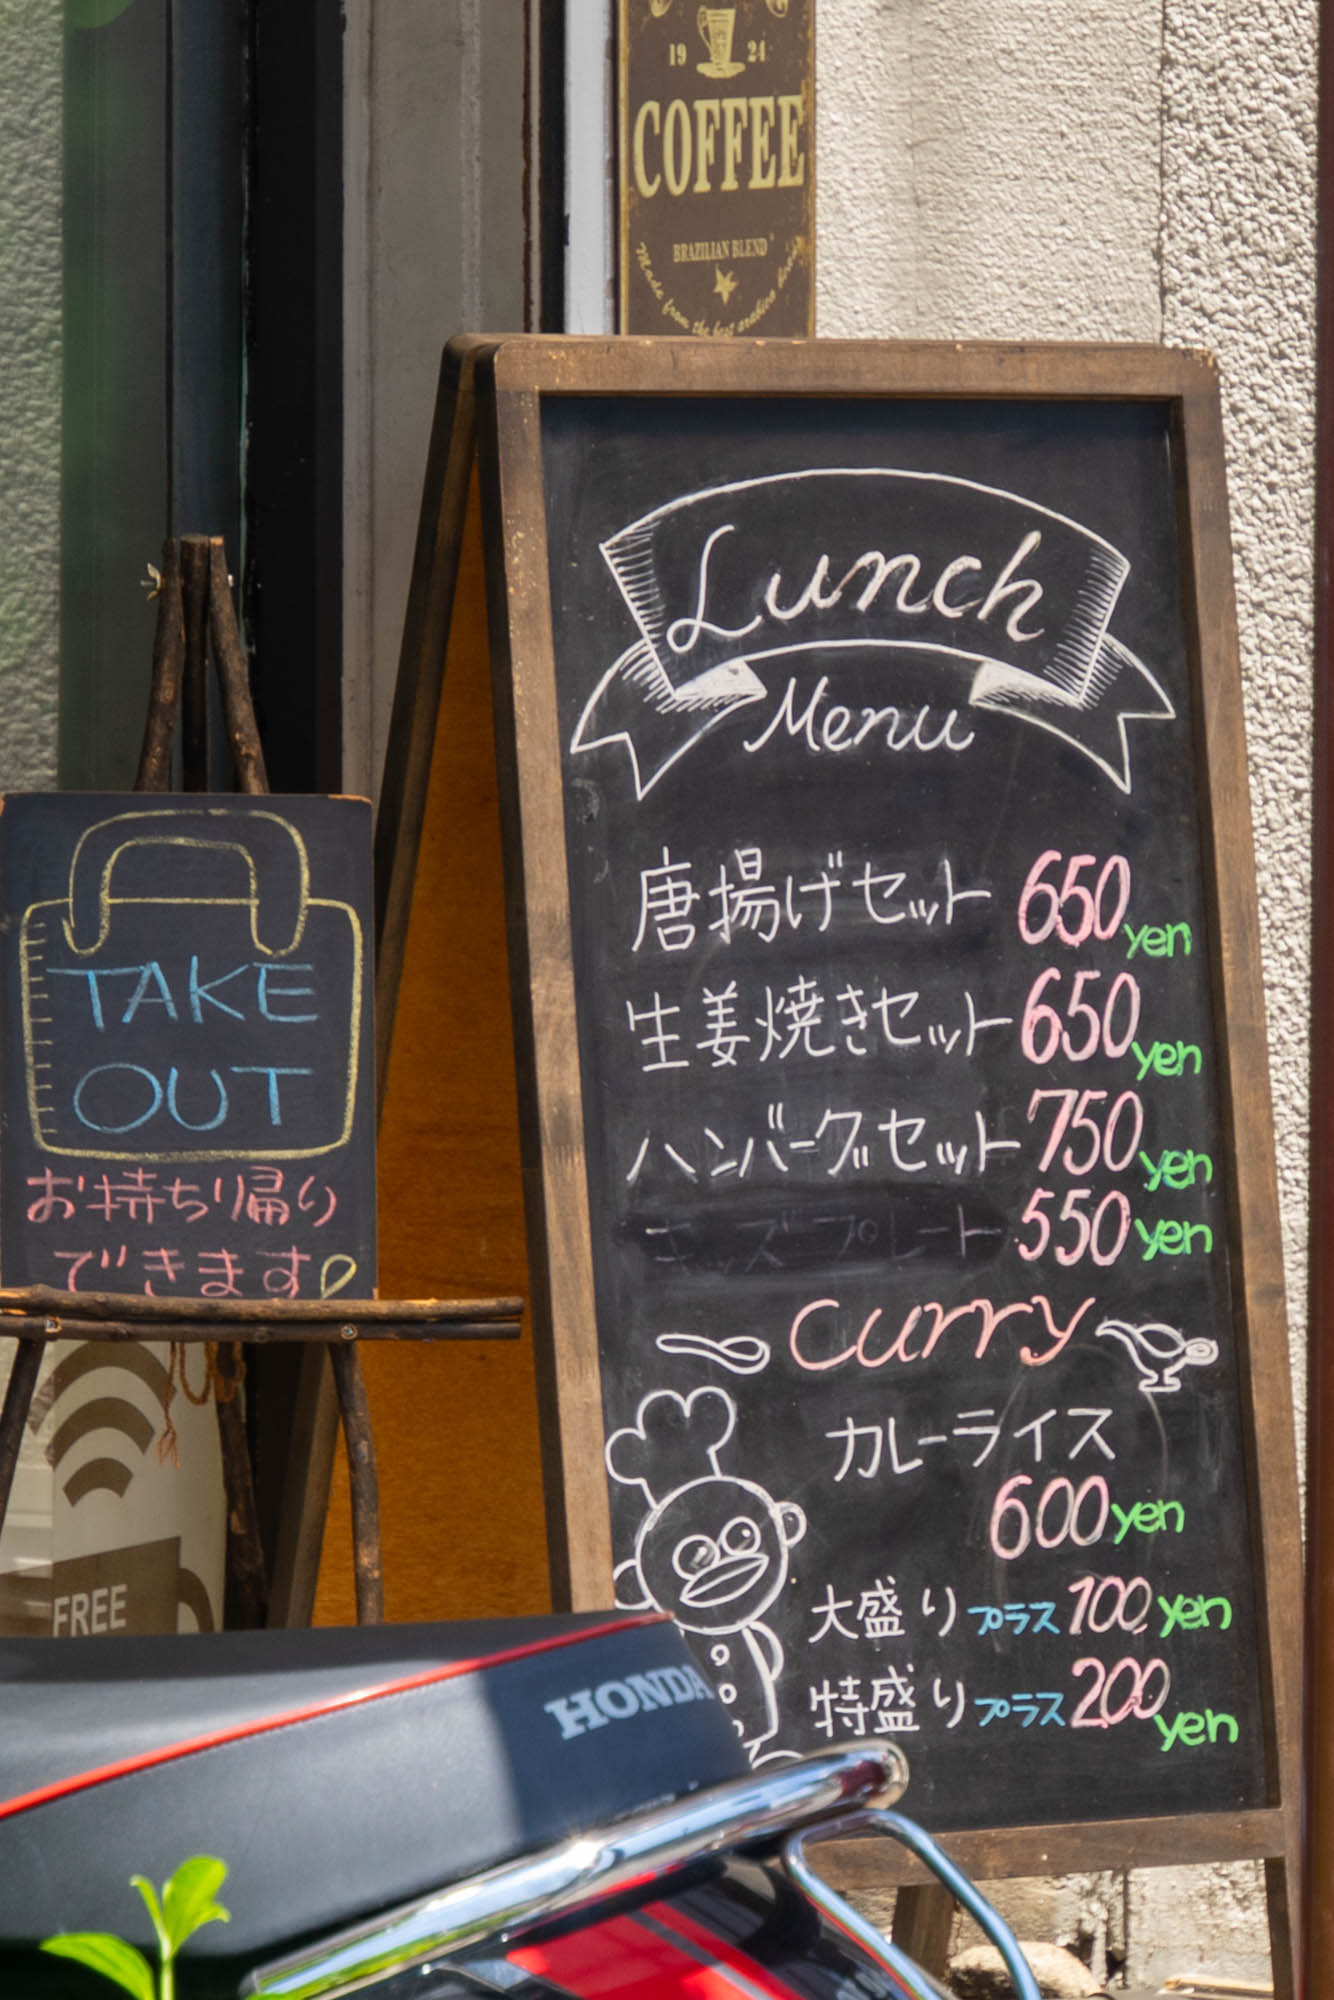 19 24
COFFEE
BRAZILIAN BLEND
Made from the best arabica beans
Lunch
Menu
唐揚げセット 650 yen
生姜焼きセット 650 yen
ハンバーグセット 750 yen
キッズプレート 550 yen
Curry
カレーライス
600 yen
大盛り プラス 100 yen
特盛り プラス 200 yen
TAKE
OUT
お持ち帰り
できます
FREE
HONDA